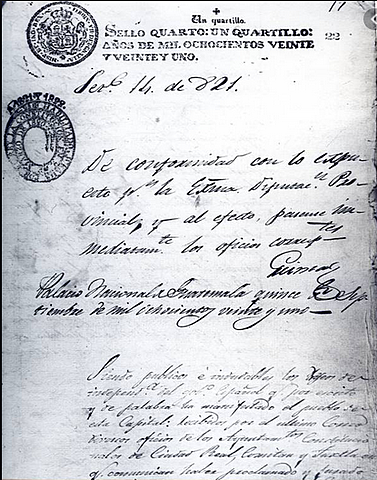 17
Un quartillo.
SELLO QUARTO: UN QUARTILLO:
AÑOS DE MIL OCHOCIENTOS VEINTE
Y VEINTE Y UNO.
22
14. de 821.
De conformidad con lo expu-
esto pr. la Exma. Diputac.n Pro-
vincial, y al efecto, pasense in-
mediatam.te los oficios corresp.tes
Palacio Nacional de Guatemala quince de Sep-
tiembre de mil ochocientos veinte y uno
Siendo publicos é indudables los deseos de
independ.a del gov.o Español q. por escrito
y de palabra ha manifestado el pueblo de
esta Capital: recibidos por el ultimo Correo
diversos oficios de los Ayuntam.tos Constitucio-
nales de Ciudad Real, Comitan y Tuxtla en
q. comunican haber proclamado y jurado